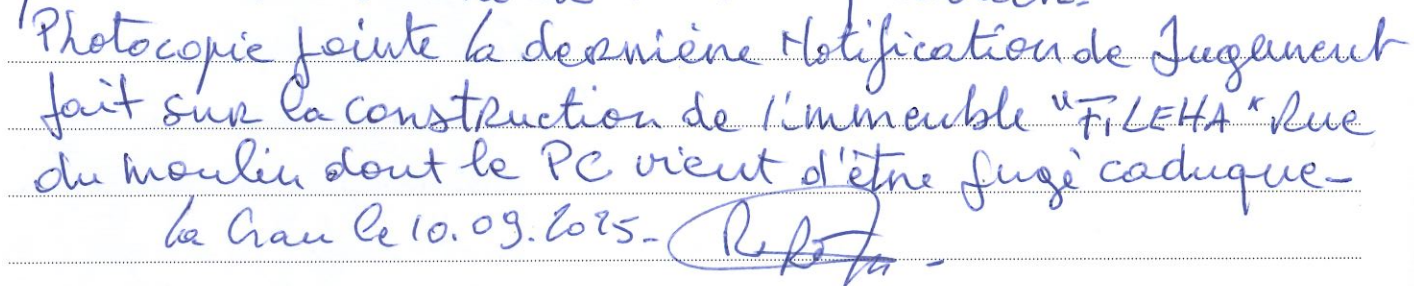 Photocopie jointe la dernière Notification de Jugement
fait sur la construction de l'immeuble "FILEHA" Rue
du moulin dont le PC vient d'être jugé caduque-
La Crau le 10.09.2025-